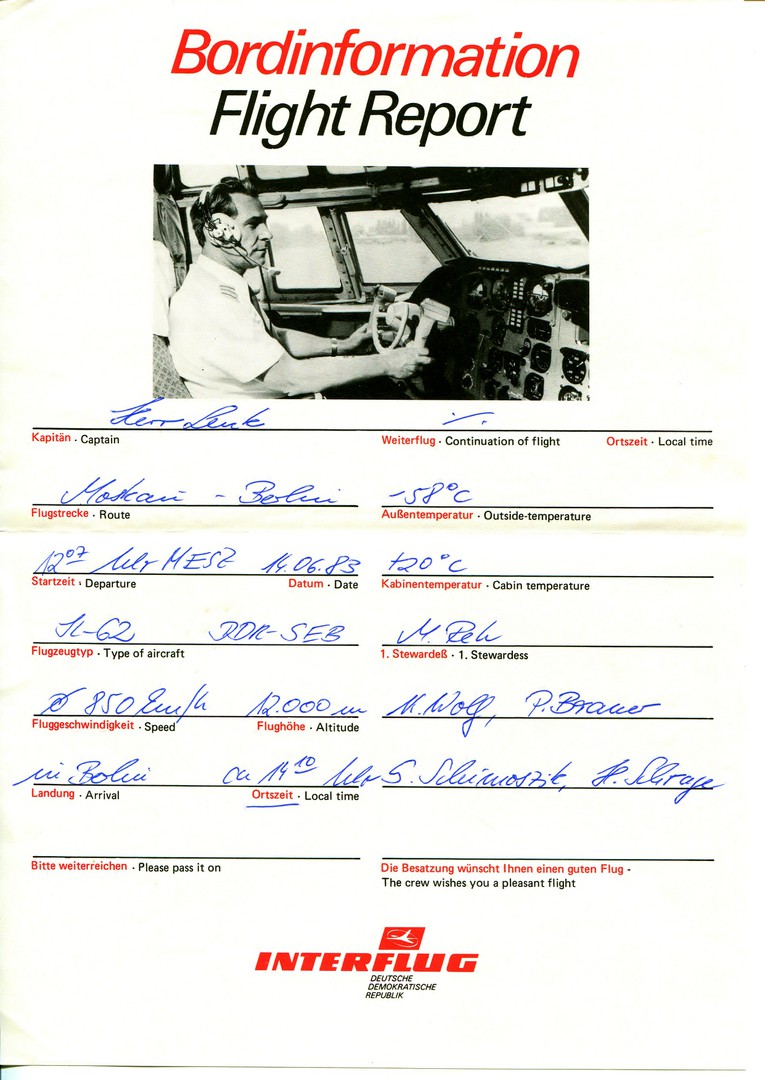 Bordinformation
Flight Report
Herr Lenk ·/.
Kapitän · Captain Weiterflug · Continuation of flight Ortszeit · Local time
Moskau - Berlin -58°C
Flugstrecke · Route Außentemperatur · Outside-temperature
12⁰⁷ Uhr MESZ 14.06.83 +20°C
Startzeit · Departure Datum · Date Kabinentemperatur · Cabin temperature
IL-62 DDR-SEB M. Reh
Flugzeugtyp · Type of aircraft 1. Stewardeß · 1. Stewardess
Ø 850 km/h 12.000 m M. Wolf, P. Brauer
Fluggeschwindigkeit · Speed Flughöhe · Altitude
in Berlin ca 14¹⁰ Uhr S. H. Schrage
Landung · Arrival Ortszeit · Local time
Bitte weiterreichen · Please pass it on Die Besatzung wünscht Ihnen einen guten Flug -
The crew wishes you a pleasant flight
INTERFLUG
DEUTSCHE
DEMOKRATISCHE
REPUBLIK